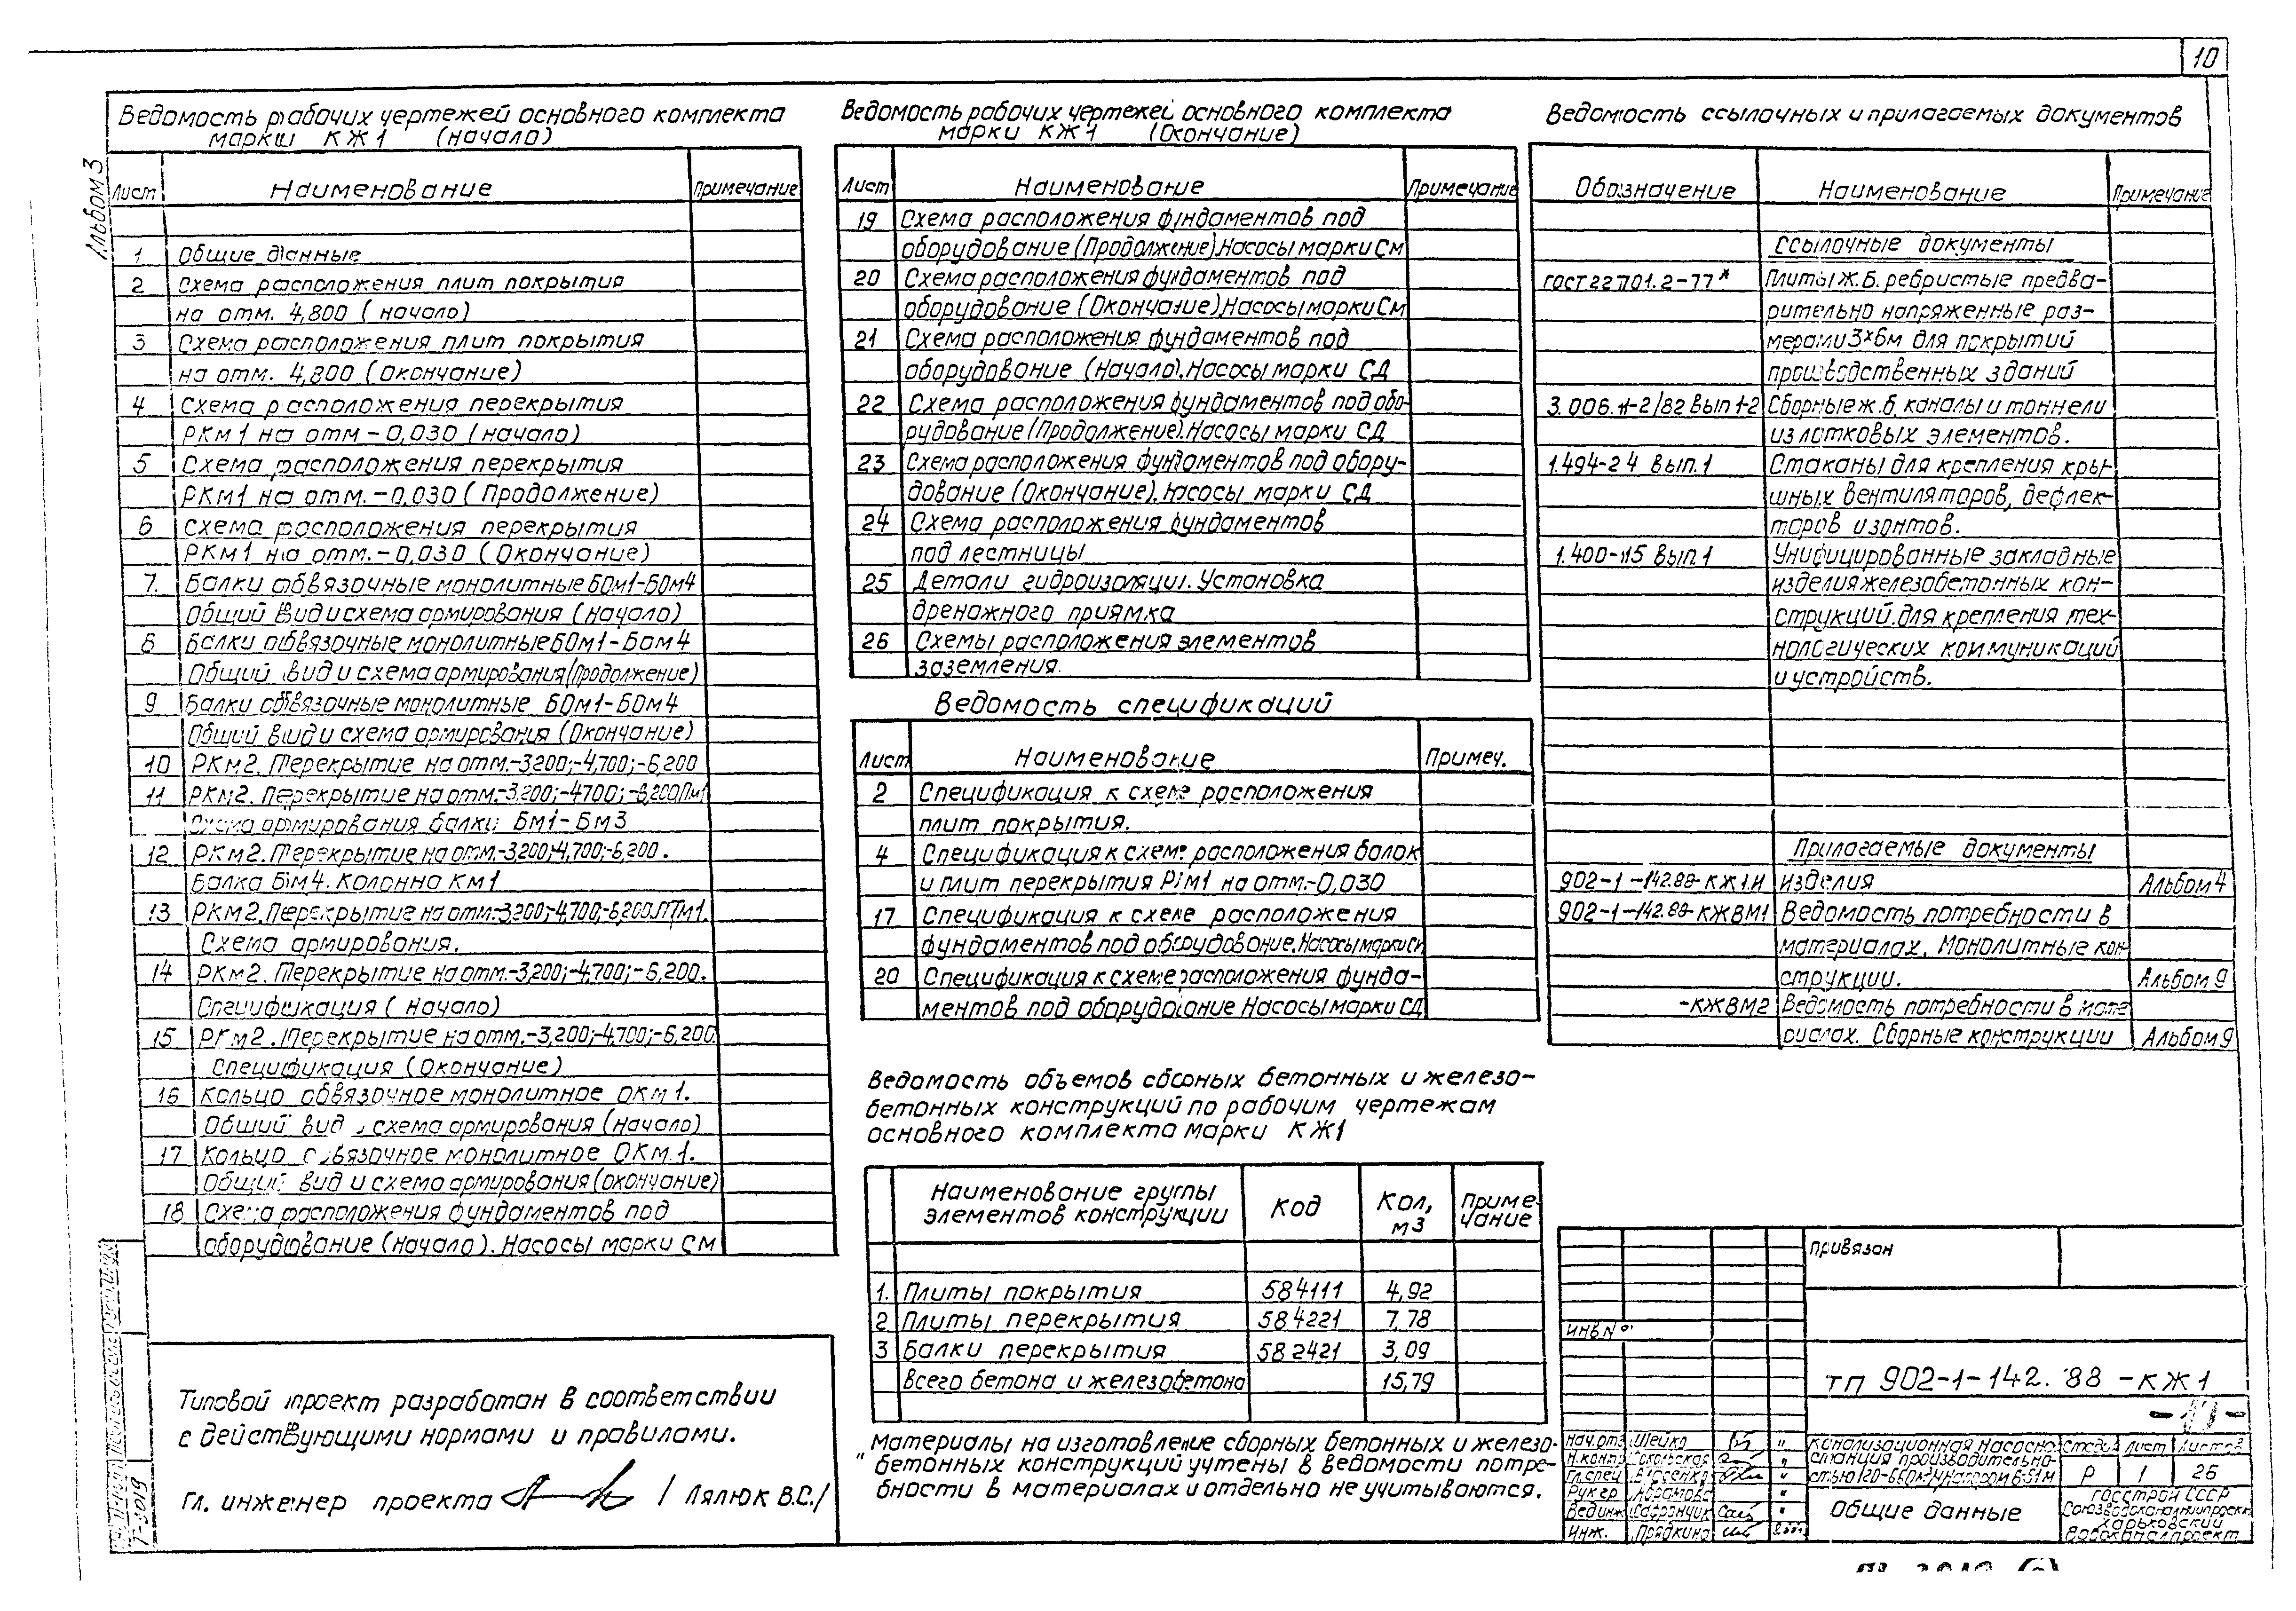 10
Альбом 3
Ведомость рабочих чертежей основного комплекта
марки КЖ1 (начало)
Лист Наименование Примечание
1 Общие данные
2 Схема расположения плит покрытия
на отм. 4,800 (начало)
3 Схема расположения плит покрытия
на отм. 4,800 (Окончание)
4 Схема расположения перекрытия
РКм1 на отм -0,030 (начало)
5 Схема расположения перекрытия
РКм1 на отм. -0,030 (Продолжение)
6 Схема расположения перекрытия
РКм1 на отм. -0,030 (Окончание)
7. Балки обвязочные монолитные БОм1-БОм4
Общий вид и схема армирования (начало)
8 Балки обвязочные монолитные БОм1-Бом4
Общий вид и схема армирования (Продолжение)
9 Балки обвязочные монолитные БОм1-БОм4
Общий вид и схема армирования (Окончание)
10 РКм2. Перекрытие на отм.-3,200;-4,700;-6,200
11 РКм2. Перекрытие на отм.-3,200;-4700;-6,200 Пм1
Схема армирования балки Бм1-Бм3
12 РКм2. Перекрытие на отм.-3,200;-4,700;-6,200.
Балка Бм4. Колонна Км1
13 РКм2. Перекрытие на отм.-3,200;-4,700;-6,200. ПТм1.
Схема армирования.
14 РКм2. Перекрытие на отм.-3,200;-4,700;-6,200.
Спецификация (начало)
15 РКм2. Перекрытие на отм.-3,200;-4,700;-6,200.
Спецификация (Окончание)
16 Кольцо обвязочное монолитное ОКм1.
Общий вид и схема армирования (начало)
17 Кольцо обвязочное монолитное ОКм1.
Общий вид и схема армирования (окончание)
18 Схема расположения фундаментов под
оборудование (начало). Насосы марки СМ
Типовой проект разработан в соответствии
с действующими нормами и правилами.
Гл. инженер проекта / Лялюк В.С./
Т-3019
Ведомость рабочих чертежей основного комплекта
марки КЖ1 (Окончание)
Лист Наименование Примечание
19 Схема расположения фундаментов под
оборудование (Продолжение). Насосы марки СМ
20 Схема расположения фундаментов под
оборудование (Окончание) Насосы марки СМ
21 Схема расположения фундаментов под
оборудование (Начало). Насосы марки СД
22 Схема расположения фундаментов под обо-
рудование (Продолжение). Насосы марки СД
23 Схема расположения фундаментов под обору-
дование (Окончание). Насосы марки СД
24 Схема расположения фундаментов
под лестницы
25 Детали гидроизоляции. Установка
дренажного приямка
26 Схемы расположения элементов
заземления.
Ведомость спецификаций
Лист Наименование Примеч.
2 Спецификация к схеме расположения
плит покрытия.
4 Спецификация к схеме расположения балок
и плит перекрытия Ркм1 на отм.-0,030
17 Спецификация к схеме расположения
фундаментов под оборудование. Насосы марки СМ
20 Спецификация к схеме расположения фунда-
ментов под оборудование Насосы марки СД
Ведомость объемов сборных бетонных и железо-
бетонных конструкций по рабочим чертежам
основного комплекта марки КЖ1
Наименование группы элементов конструкции Код Кол, м3 Приме-чание
1. Плиты покрытия 584111 4,92
2 Плиты перекрытия 584221 7,78
3 Балки перекрытия 582421 3,09
Всего бетона и железобетона 15,79
Материалы на изготовление сборных бетонных и железо-
бетонных конструкций учтены в ведомости потре-
бности в материалах и отдельно не учитываются.
Ведомость ссылочных и прилагаемых документов
Обозначение Наименование Примечание
Ссылочные документы
ГОСТ 22701.2-77* Плиты ж.б. ребристые предва-
рительно напряженные раз-
мерами 3×6м для покрытий
производственных зданий
3.006.1-2/82 Вып 1-2 Сборные ж.б. каналы и тоннели
из лотковых элементов.
1.494-24 вып.1 Стаканы для крепления кры-
шных вентиляторов, дефлек-
торов и зонтов.
1.400-15 вып.1 Унифицированные закладные
изделия железобетонных кон-
струкций для крепления тех-
нологических коммуникаций
и устройств.
Прилагаемые документы
902-1-142.88-КЖ1.И изделия Альбом 4
902-1-142.88-КЖВМ1 Ведомость потребности в
материалах. Монолитные кон
струкции. Альбом 9
-КЖВМ2 Ведомость потребности в мате
риалах. Сборные конструкции Альбом 9
Привязан
ИНВ №
ТП 902-1-142.88 -КЖ1
-10-
Нач.отд Шейко
Н.контр Сокольская
Гл.спец
Рук.гр Абрамова
Вед.инж
Инж. Прядкина
Канализационная насосная
станция производительно-
стью 120-660 м³/ч напором 6-51м
Стадия Лист Листов
Р 1 26
Общие данные
Госстрой СССР
Союзводоканалпроект
Харьковский
Водоканалпроект